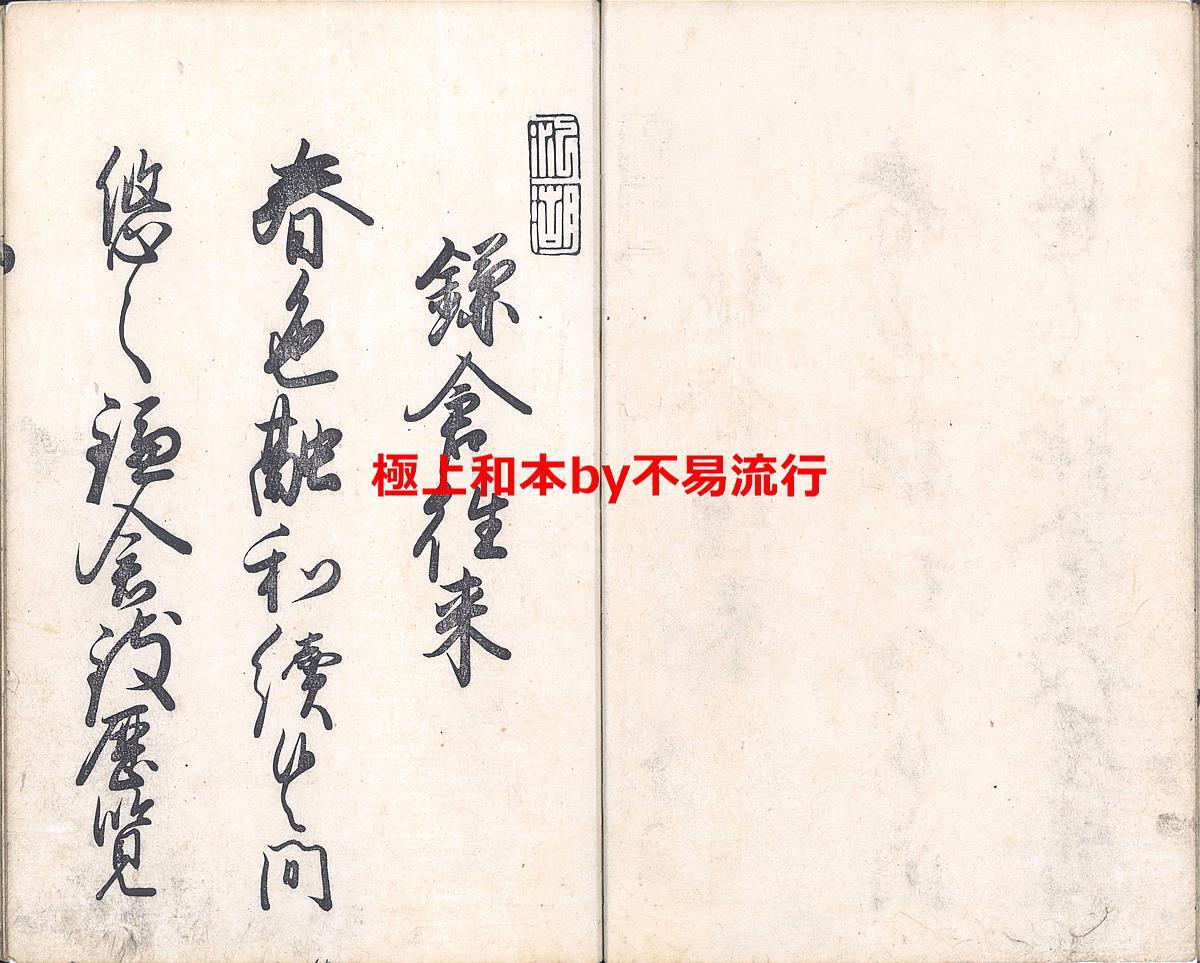 鎌倉往来
春色融和續間
悠々鎌倉致歴覧
極上和本by不易流行